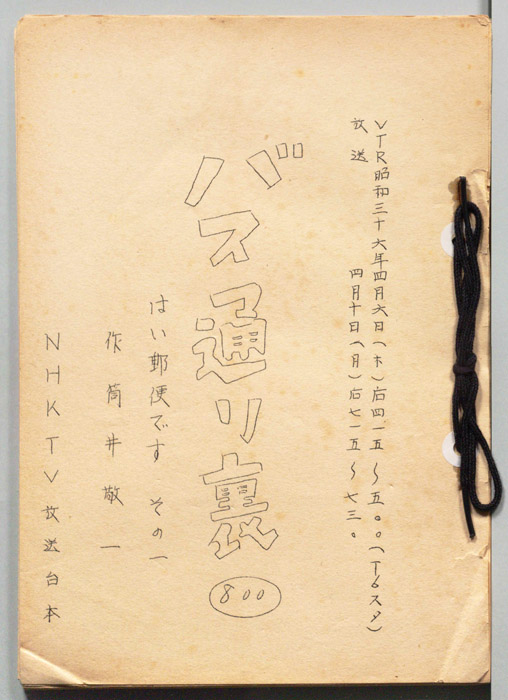 VTR昭和三十六年四月六日(木)后四一五〜五〇〇(T6スタ)
放送　四月十日(月)后七一五〜七三〇
バス通り裏
800
はい郵便です　その一
作　筒井敬一
NHKTV放送台本